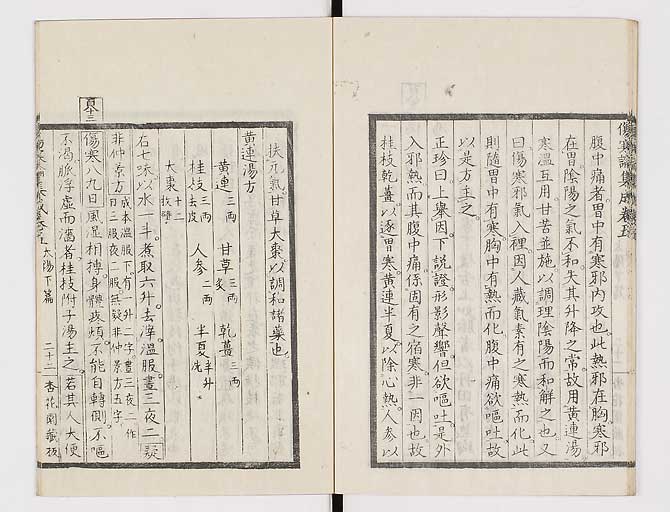 傷寒論集成卷五
腹中痛者胃中有寒邪内攻也此熱邪在胸寒邪
在胃陰陽之氣不和失其升降之常故用黄連湯
寒溫互用甘苦並施以調理陰陽而和解之也又
曰傷寒邪氣入裡因人藏氣素有之寒熱而化此
則隨胃中有寒胸中有熱而化腹中痛欲嘔吐故
以是方主之
正珍曰上舉因下説證形影聲響但欲嘔吐是外
入邪熱而其腹中痛係固有之宿寒非一因也故
桂枝乾薑以逐胃寒黄連半夏以除心熱人参以
扶元氣甘草大棗以調和諸藥也
黄連湯方
黄連三兩 甘草三兩炙 乾薑三兩
桂枝三兩去皮 人参二兩 半夏半升洗
大棗十二枚擘
右七味以水一斗煮取六升去滓溫服晝三夜二疑
非仲景方成本溫服下有一升二字晝三夜二作
日三服夜二服無疑非仲景方五字
傷寒八九日風濕相搏身體疼煩不能自轉側不嘔
不渴脈浮虛而濇者桂枝附子湯主之若其人大便
太陽下篇 二十二 杏花園藏板